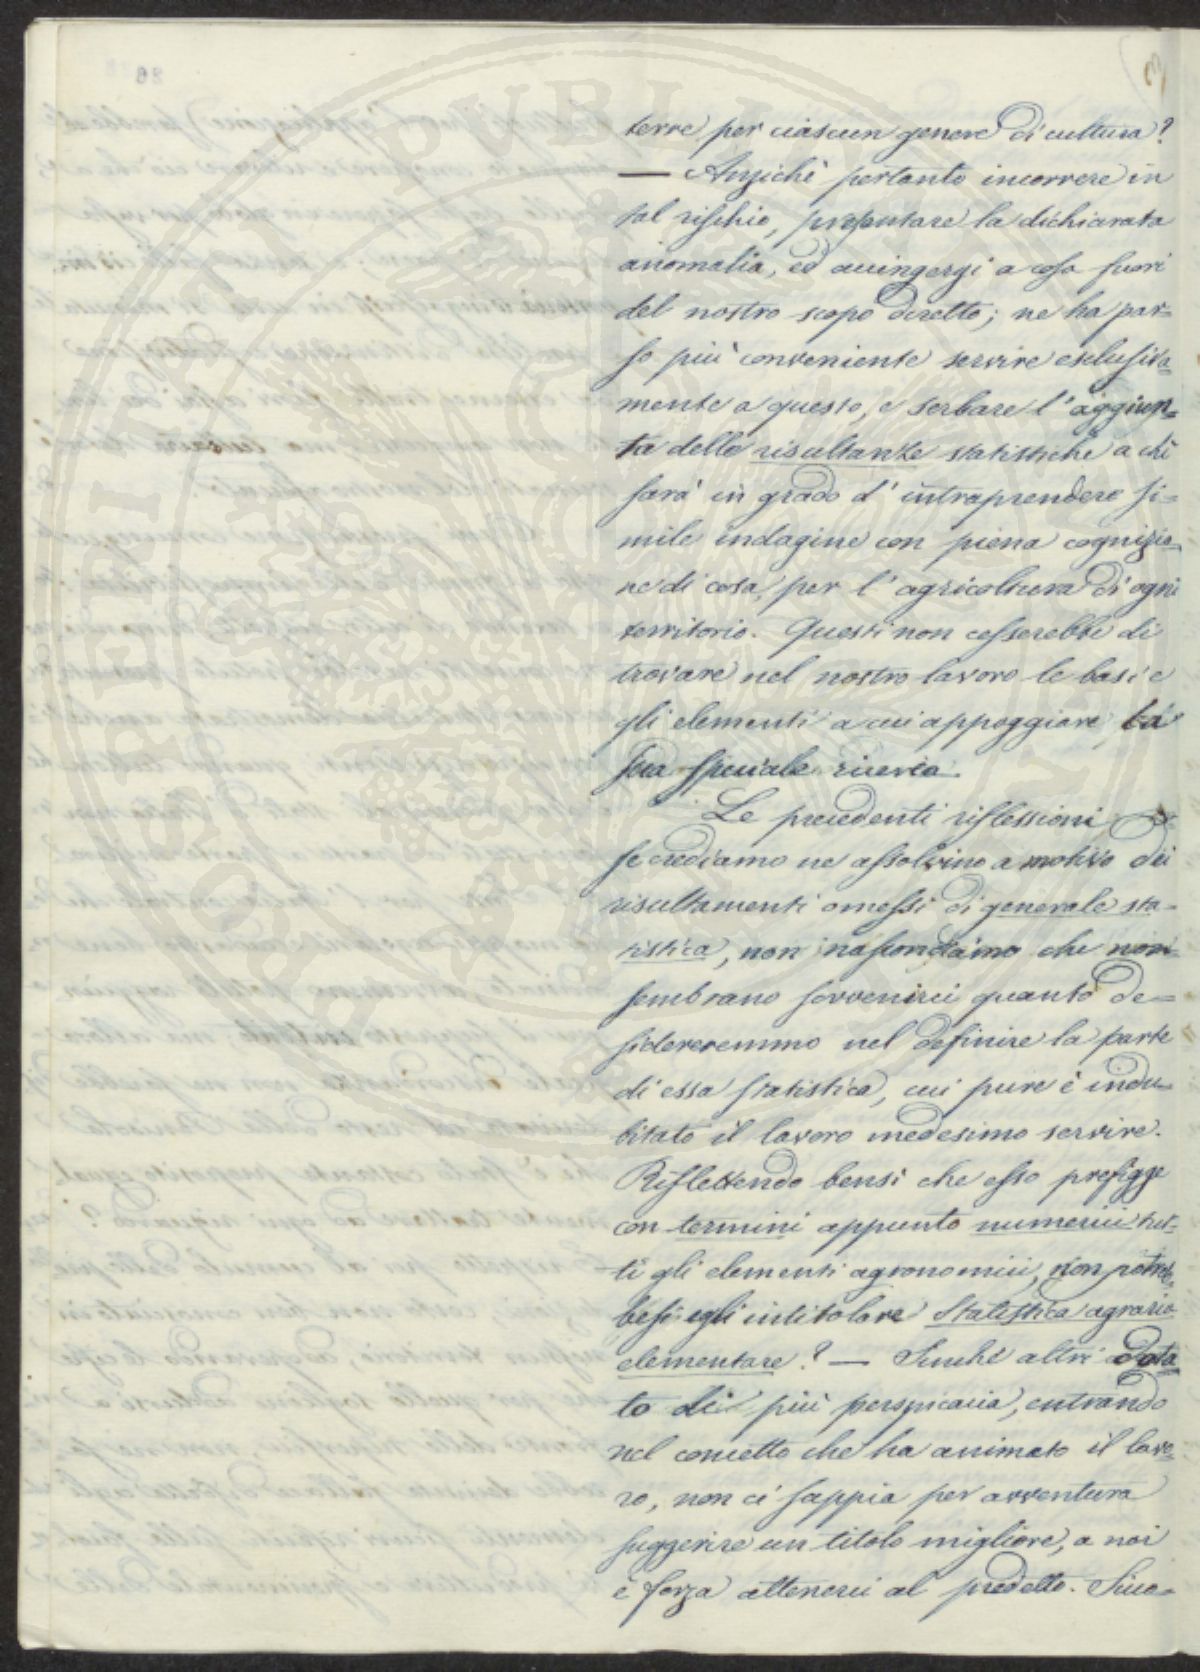 terre per ciascun genere di cultura?
— Anziché pertanto incorrere in
tal rischio, presentare la dichiarata
anomalia, ed accingersi a cosa fuori
del nostro scopo diretto; ne ha par-
so più conveniente servire esclusiva-
mente a questo, e serbare l'aggiun-
ta delle risultanze statistiche a chi
sarà in grado d'intraprendere si-
mile indagine con piena cognizio-
ne di cosa, per l'agricoltura di ogni
territorio. Questi non cesserebbe di
trovare nel nostro lavoro le basi e
gli elementi a cui appoggiare la
sua speciale ricerca.
Le precedenti riflessioni
se crediamo ne assolvino a motivo dei
risultamenti omessi di generale sta-
tistica, non nascondiamo che non
sembrano sovvenirci quanto de-
sidereremmo nel definire la parte
di essa statistica, cui pure è indu-
bitato il lavoro medesimo servire.
Riflettendo bensì che esso prefigge
con termini appunto numerici tut-
ti gli elementi agronomici, non potreb-
besi egli intitolare Statistica agraria
elementare? — Sinché altri dota-
to di più perspicacia, entrando
nel concetto che ha animato il lavo-
ro, non ci sappia per avventura
suggerire un titolo migliore, a noi
è forza attenerci al predetto. Sico-